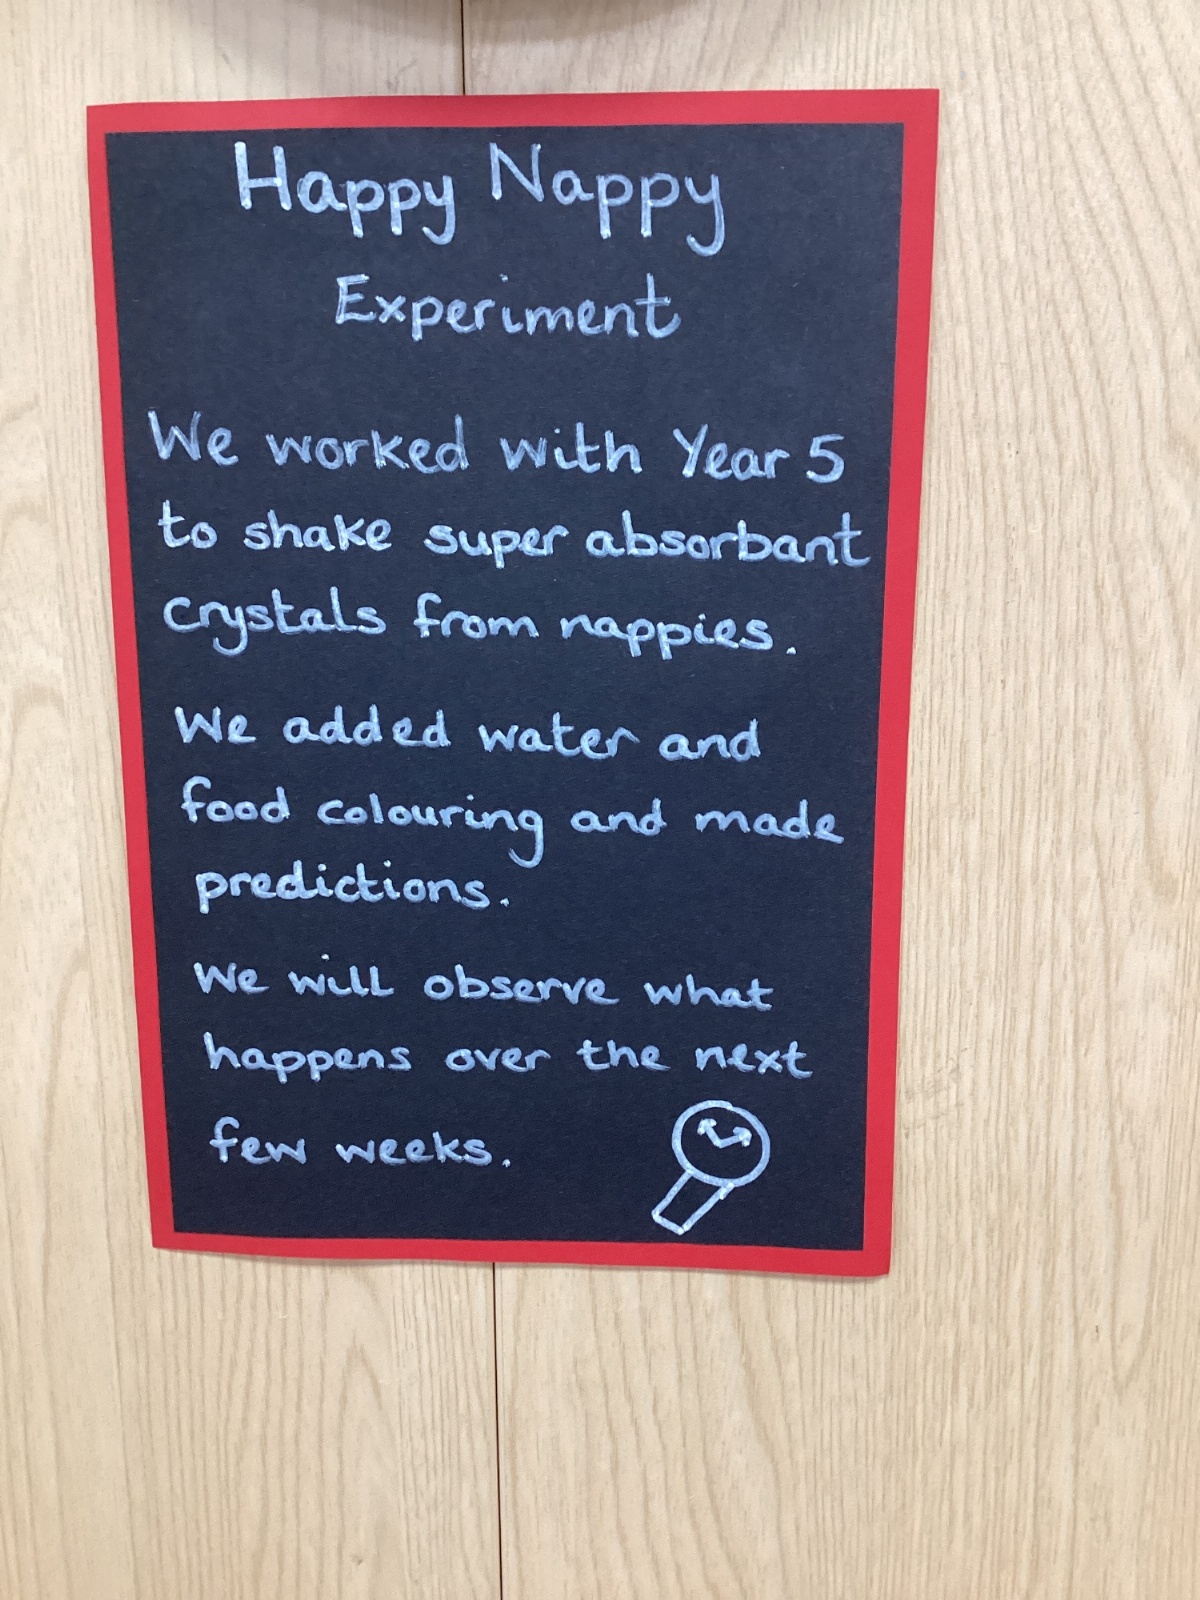 Happy Nappy
Experiment
We worked with Year 5
to shake super absorbant
crystals from nappies.
We added water and
food colouring and made
predictions.
We will observe what
happens over the next
few weeks.